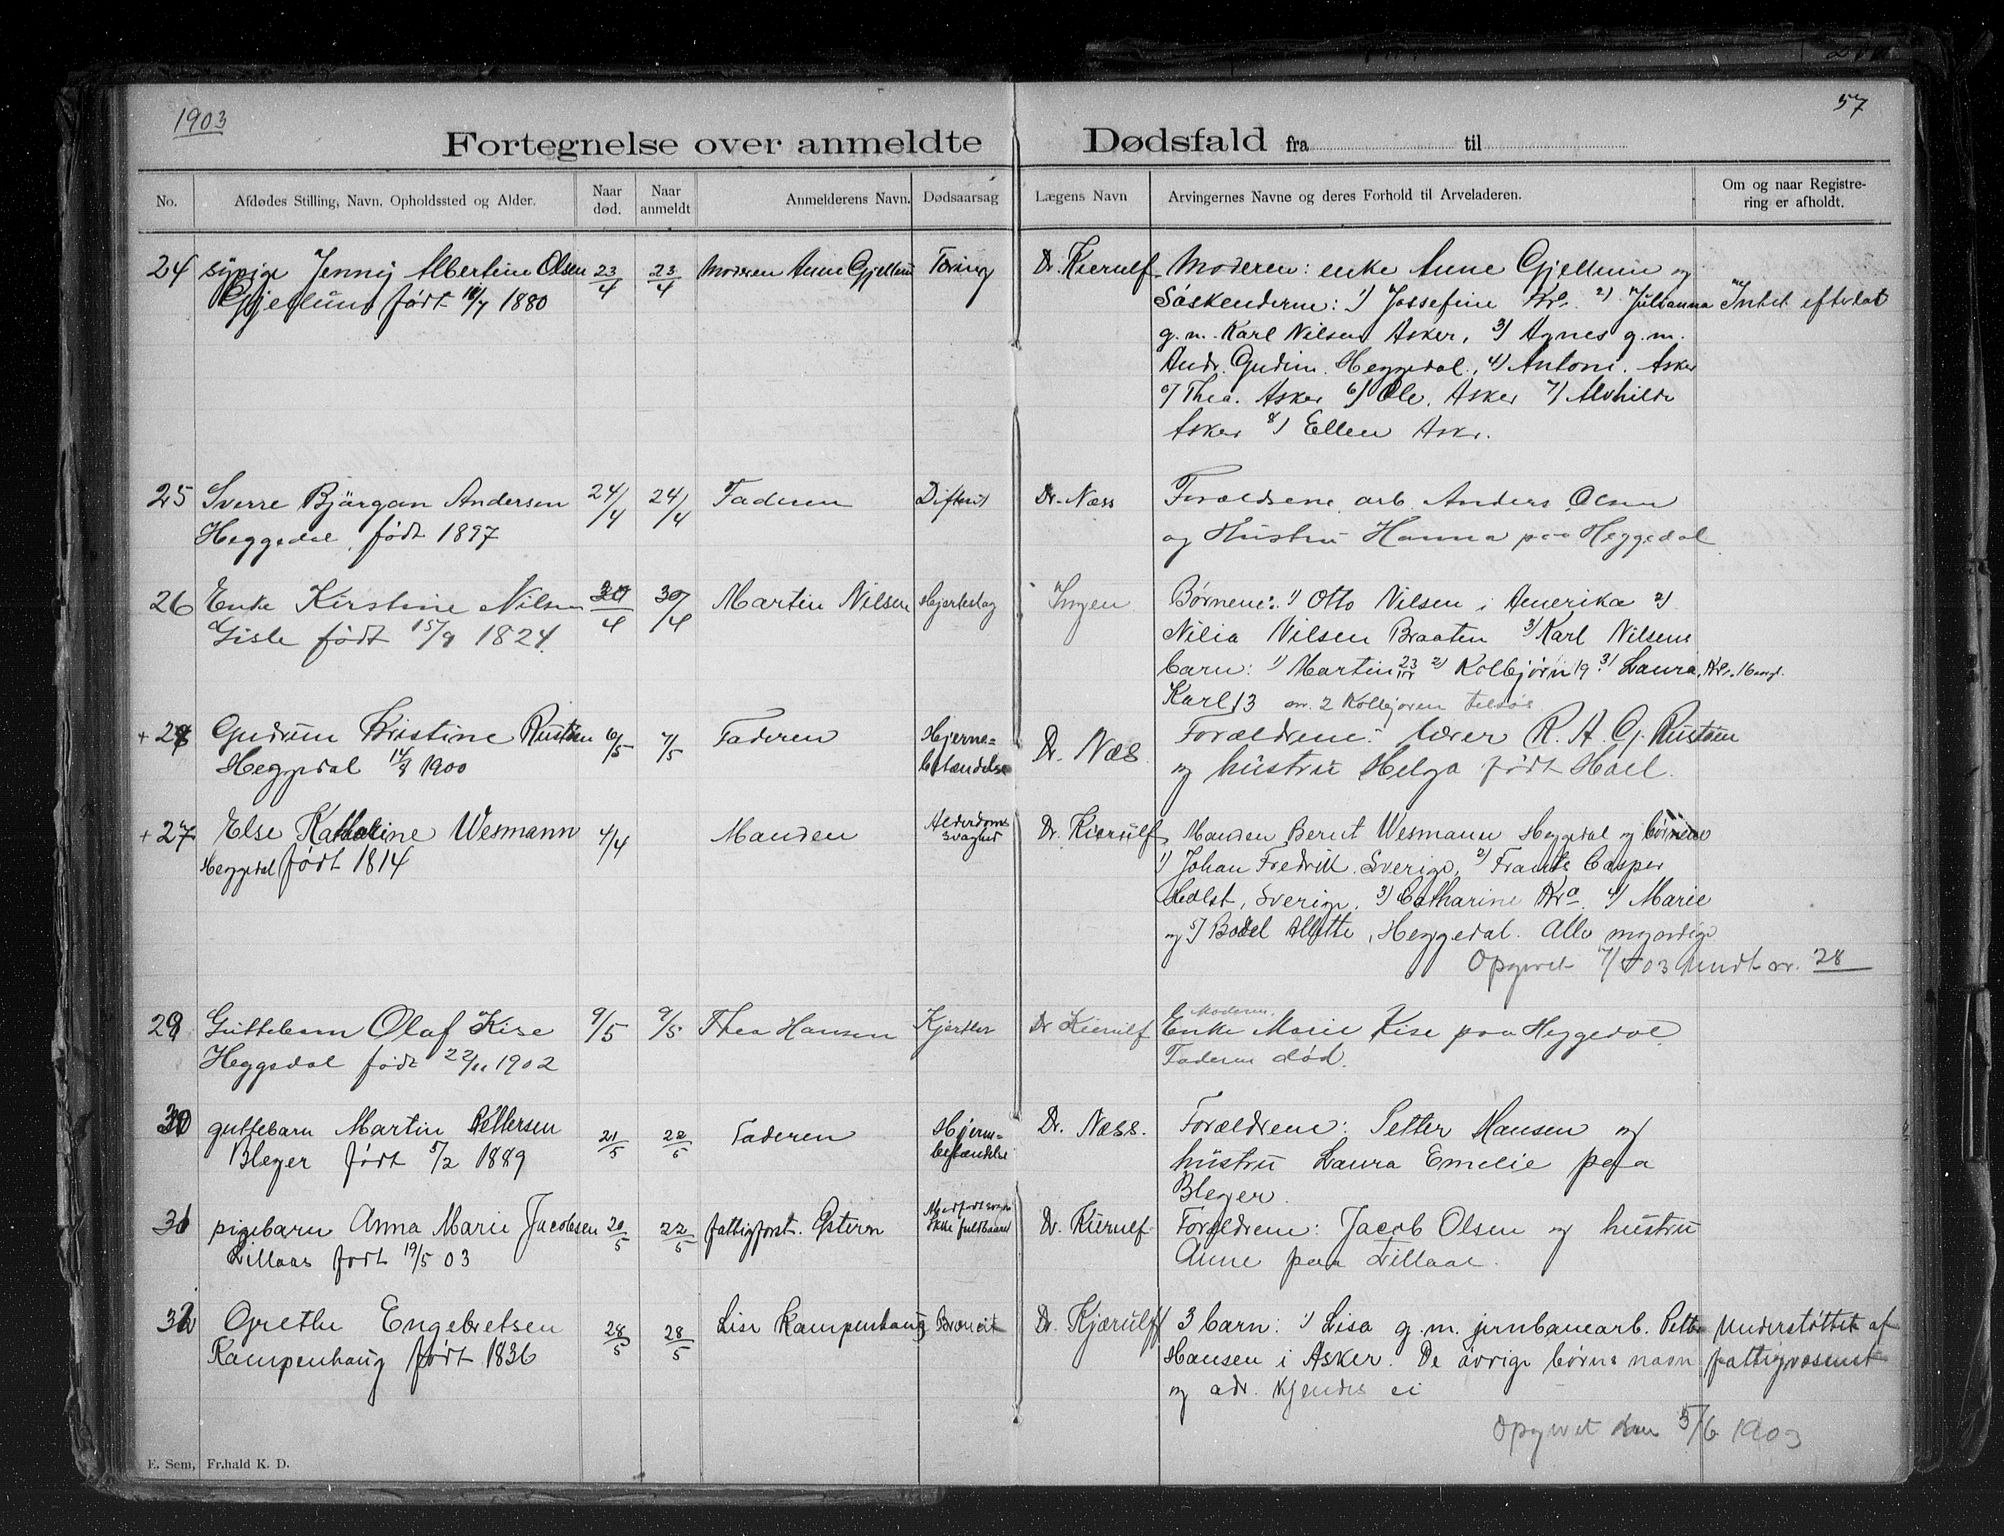 1903
57
Fortegnelse over anmeldte Dødsfald fra til
No.
Afdødes Stilling, Navn, Opholdssted og Alder.
Naar død.
Naar anmeldt
Anmelderens Navn.
Dødsaarsag
Lægens Navn
Arvingernes Navne og deres Forhold til Arveladeren.
Om og naar Registrering er afholdt.
24 sypige Jenny Albertine Olsen 23/4 23/4 Moderen Anne Gjellum Tæring Dr. Kierulf Moderen: enke Anne Gjellum og
Gjellum født 18/7 1880 Søskenderne: 1) Jossefine Kra. 2) Julianna Intet efterlat
g. m. Karl Nilsen Asker, 3) Agnes g. m.
Andr. Gudim. Heggedal, 4) Antoni. Asker
5) Thea. Asker 6) Ole. Asker 7) Alvhilde
Asker 8) Ellen Askr.
25 Sverre Bjärgan Andersen 24/4 24/4 Faderen Difterit Dr. Næss Forældrene, arb. Anders Olsen
Heggedal, født 1897 og Hustru Hanna paa Heggedal
26 Enke Kirstine Nilsen 30/4 30/4 Martin Nilsen Hjerteslag Ingen Børnene: 1) Otto Nilsen i Amerika 2)
Gisle født 15/9 1824 Nilia Nilsen Braaten 3) Karl Nilsens
barn: 1) Martin 23 2) Kolbjørn 19 3) Laura, Kra.
Karl 13 2 Kolbjoren
+ 28 Gudrun Kristine Rustøen 6/5 7/5 Faderen Hjerne= Dr. Næs Forældrene: lærer R. A. G. Rustøen
Heggedal 1900 betændelse og hustru Helga født Hoel.
+ 27 Else Katharine Wesmann 4/4 Manden Alderdoms Dr. Kierulf Manden Bernt Wesmann Heggedal og børnene
Heggedal født 1814 svaghed 1) Johan Fredrik. Sverige, 2) Frants Casper
Holst, Sverige, 3) Catharine Kra. 4) Marie
og 5) Bodel Alette, Heggedal. Alle myndige
Opgivet 7/5 03 undt nr. 28
29 Guttebarn Olaf Kise 9/5 9/5 Thea Hansen Kjertler Dr Kierulf Moderen Enke Marie Kise paa Heggedal
Heggedal født 22/11 1902 Faderen død.
30 guttebarn Martin Pettersen 21/5 22/5 Faderen Hjerne= Dr. Næss. Forældrene: Petter Hansen og
Bleger født 5/2 1889 betændelse hustru Laura Emelie paa
Bleger.
31 pigebarn Anna Marie Jacobsen 20/5 22/5 fattigforst. Østern Medfødt svaghet Dr. Kierulf Forældrene: Jacob Olsen og hustru
Lillaas født 19/5 03 ikke fuldbaaret Anne paa Lillaas.
32 Grethe Engebretsen 28/5 28/5 Lise Kampenhaug Bronkit Dr. Kjærulf 3 barn: 1) Lisa g. m. jernbanearb. Petter Understøttet af
Kampenhaug født 1836 Hansen i Asker. De øvrige børns navn fattigvæsenet
og adr. kjendes ei
Opgivet den 5/6 1903
E. Sem, Fr.hald K. D.